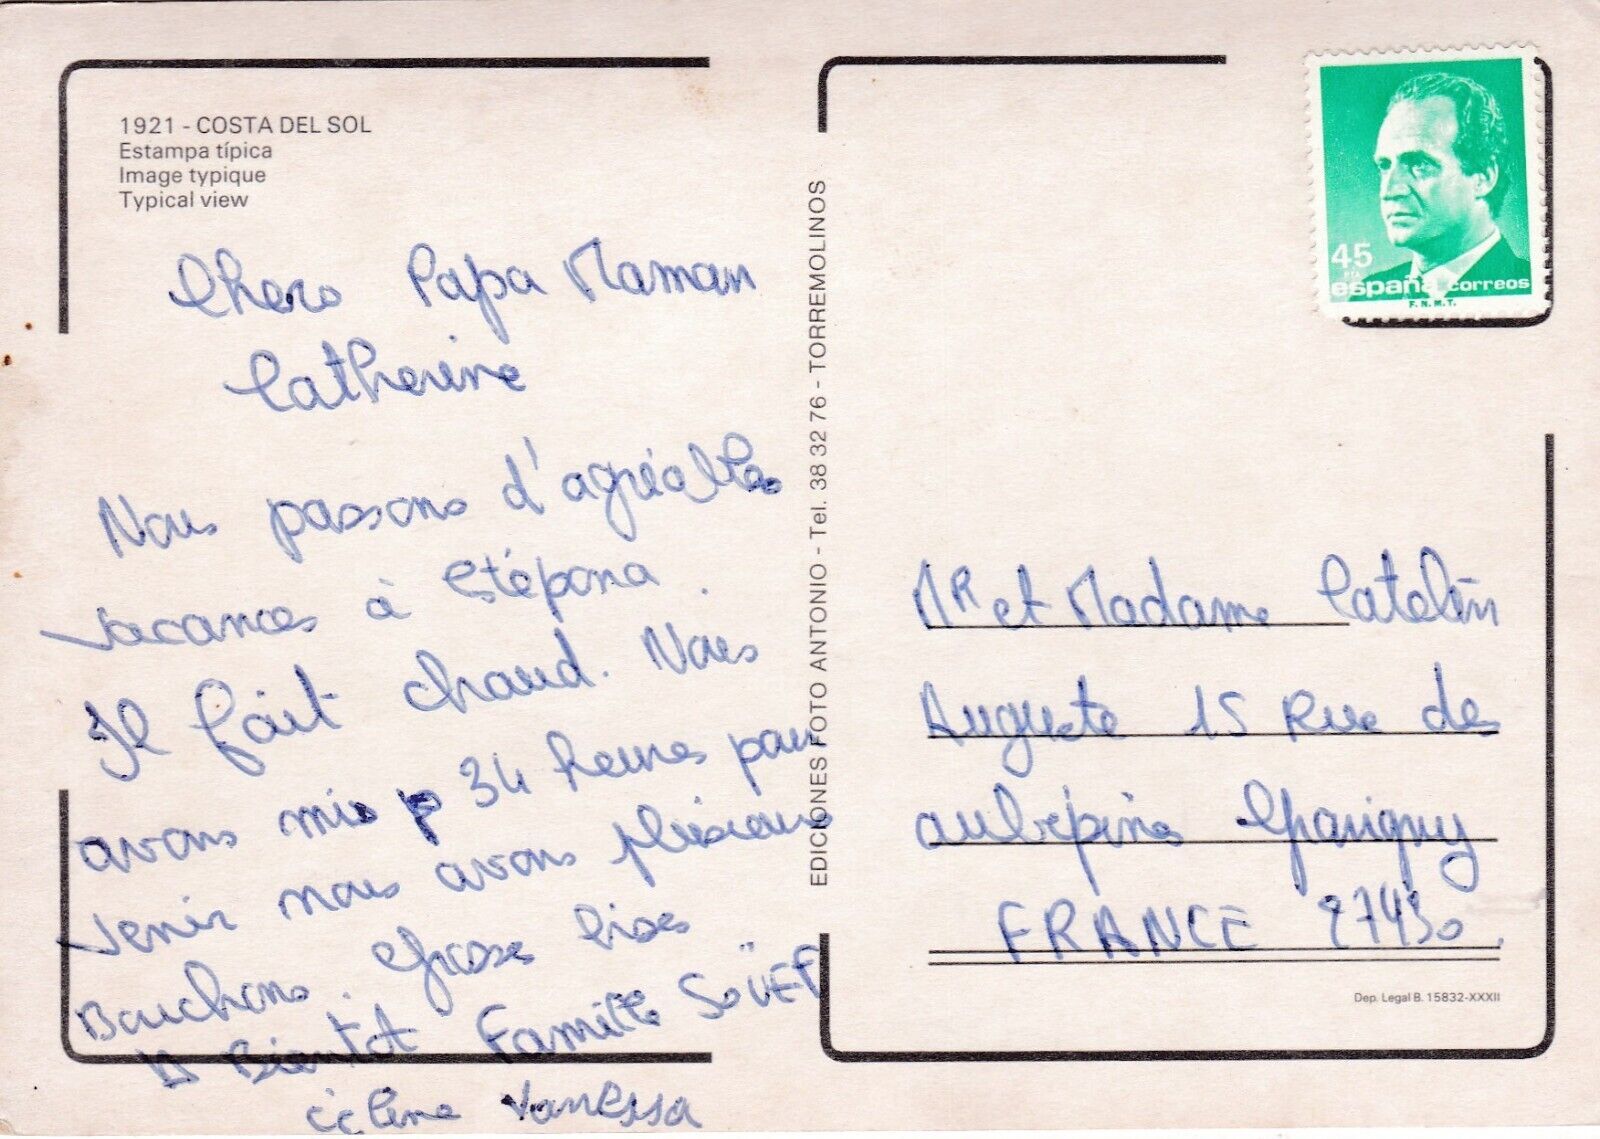 1921 - COSTA DEL SOL
Estampa típica
Image typique
Typical view
Chers Papa Maman
Catherine
Nous passons d'agréables
vacances à Estépona.
Il fait chaud. Nous
avons mis p 34 heures pour
venir nous avons plusieurs
Bouchons. Grosses bises
A Bientot Famille
Vanessa
EDICIONES FOTO ANTONIO - Tel. 38 32 76 - TORREMOLINOS
45
PTA
españa correos
F.N.M.T.
Mr et Madame Catelin
Auguste 15 Rue des
aubépine Gravigny
FRANCE 27430.
Dep. Legal B. 15832-XXXII